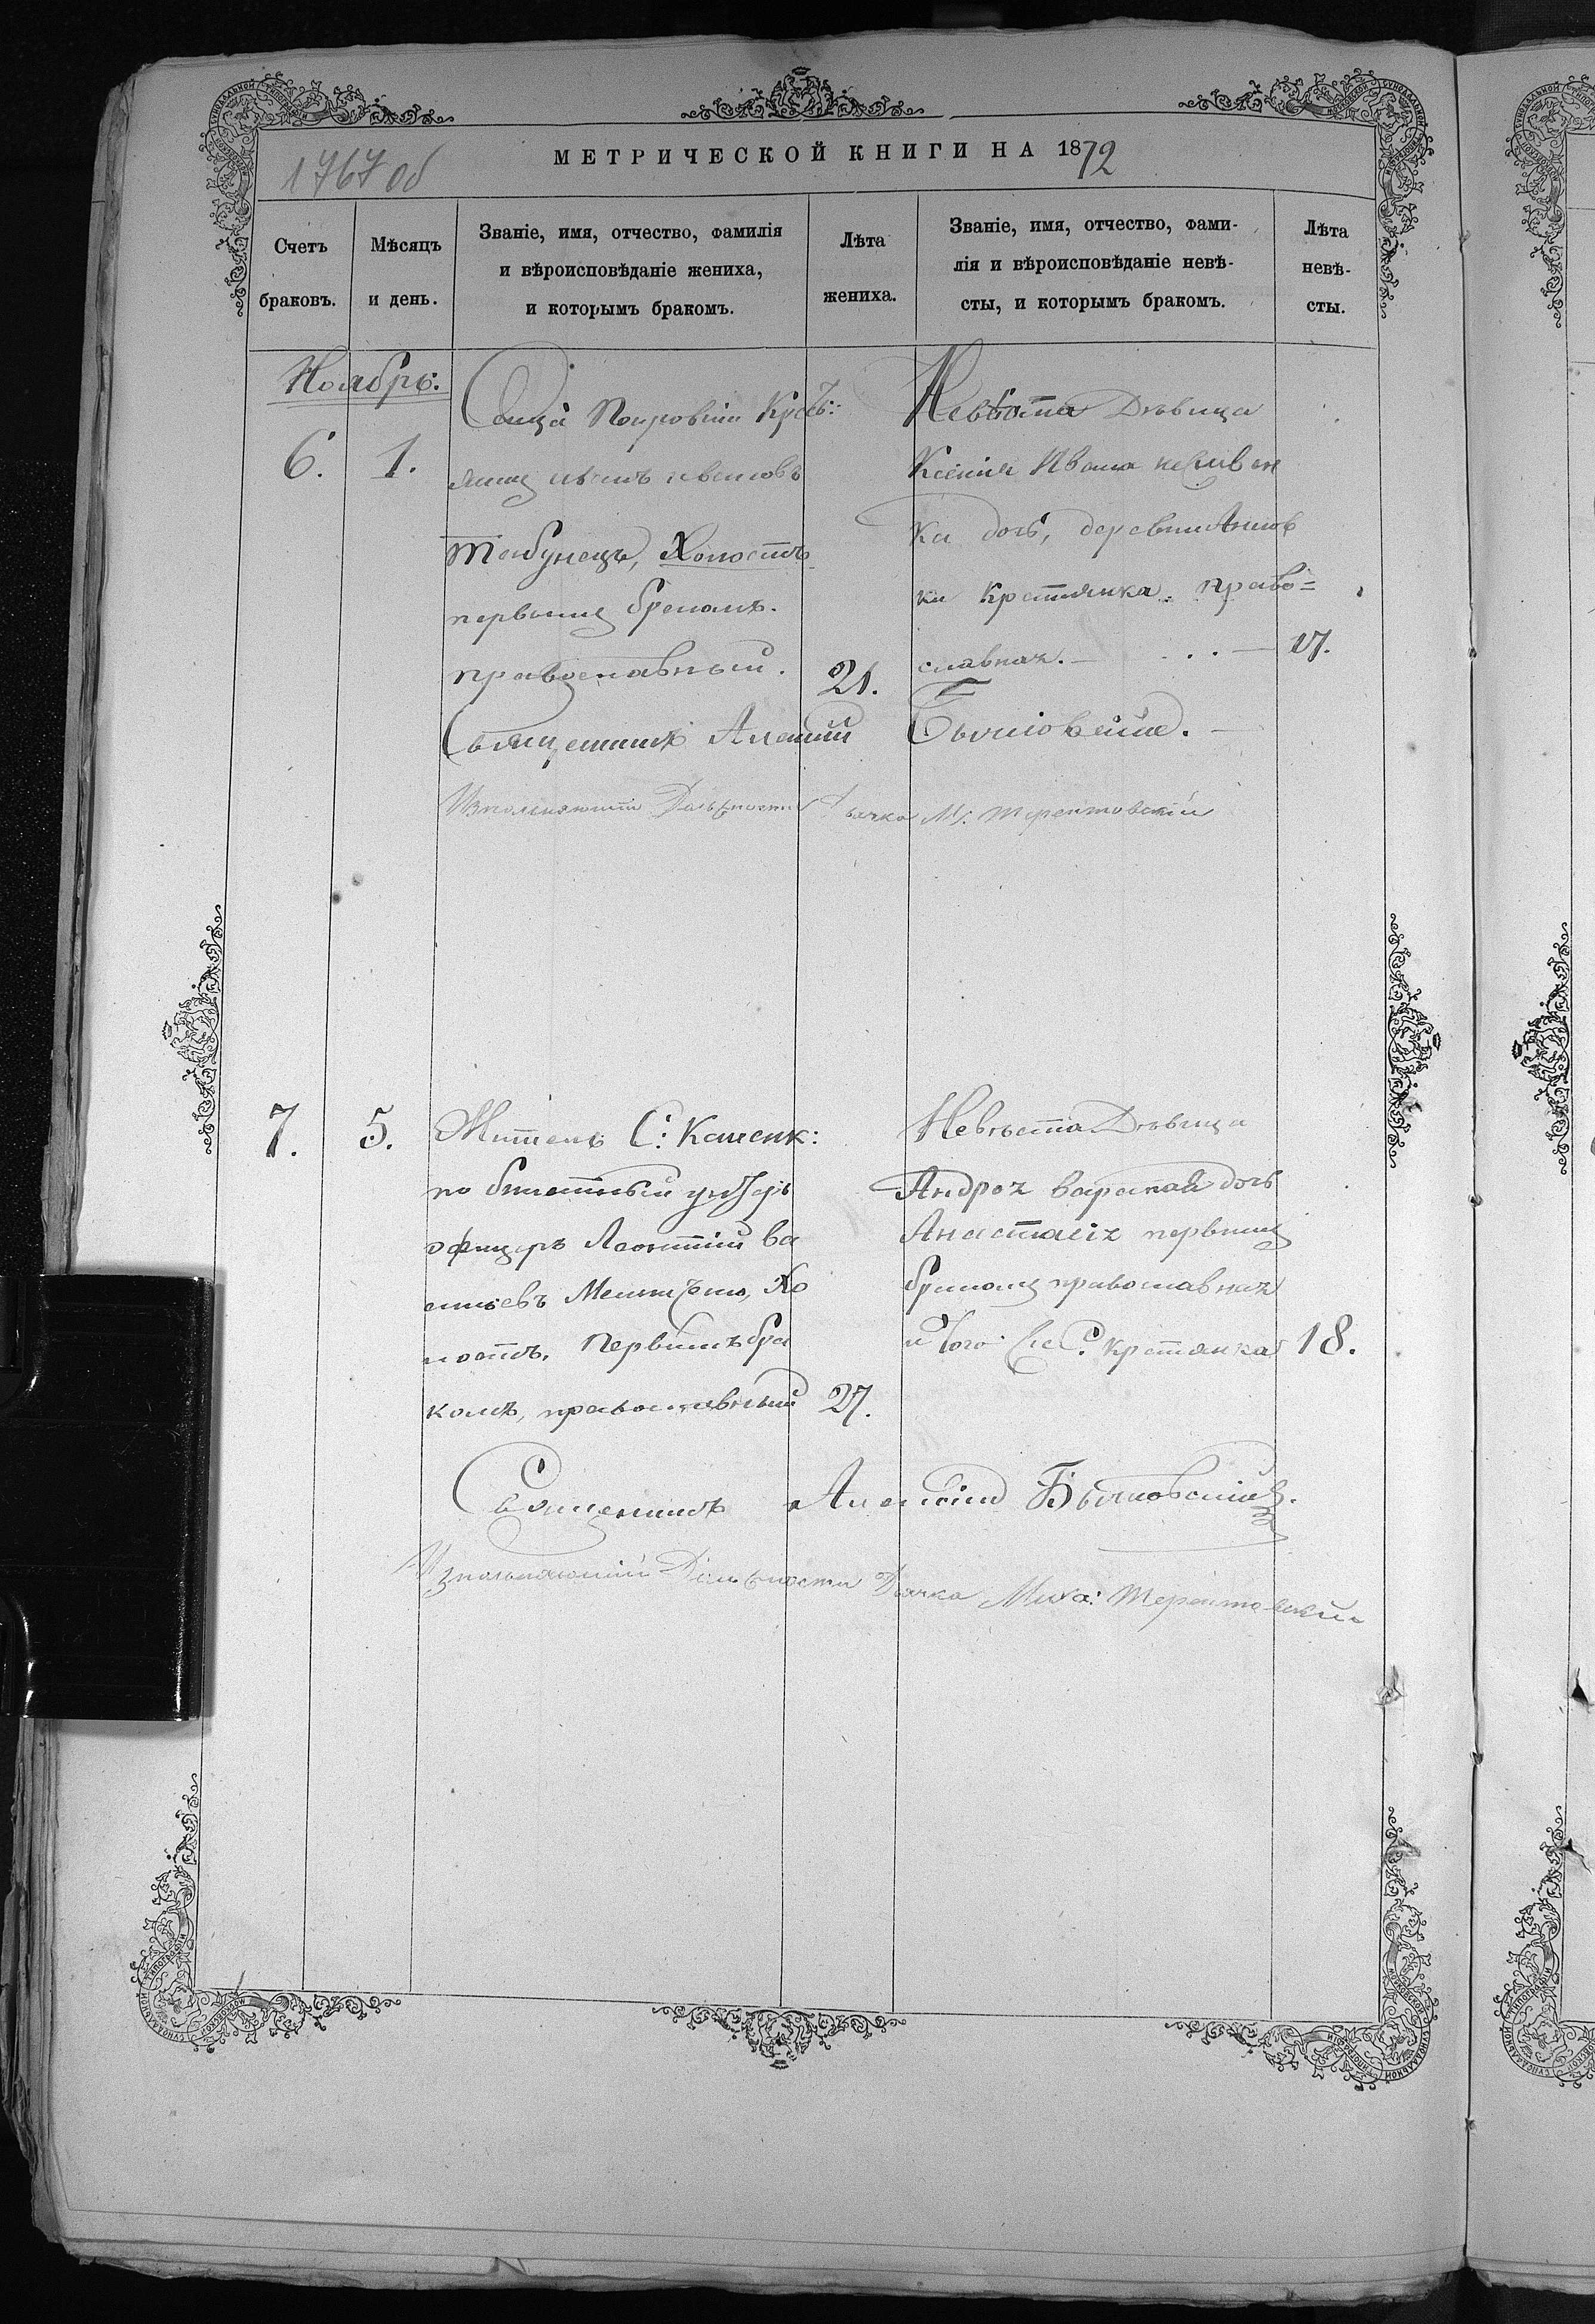 МЕТРИЧЕСКОЙ КНИГИ НА 1872
1767 об
Счетъ браковъ.
Мѣсяцъ и день.
Званіе, имя, отчество, фамилія
и вѣроисповѣданіе жениха,
и которымъ бракомъ.
Лѣта жениха.
Званіе, имя, отчество, фами-
лія и вѣроисповѣданіе невѣ-
сты, и которымъ бракомъ.
Лѣта невѣ-
сты.
Ноябрь:
6. 1.
Покровки Крест:
янинъ Иванъ Ивановъ
Табунецъ, Холостъ
первымъ бракомъ.
православный. 21.
Невѣста Дѣвица
Ксенія Ивана
ка дочь, деревни
ки Крестьянка. право=
славная. — 17.
Священникъ Алексій Бычковскій.
Исполняющій Должность Дьячка М. Терентовскій
7. 5.
Житель С: Каменк:
по билетный унтеръ
офицеръ Леонтій Ва
сильевъ Хо
лостъ, Первымъ бра
комъ, православный 27.
Невѣста Дѣвица
Андрея дочь
Анастасія первымъ
бракомъ православная
и того же С. крестьянка 18.
Священникъ Алексій Бычковскій.
Исполняющій Должности Дьячка Миха: Терентовскій